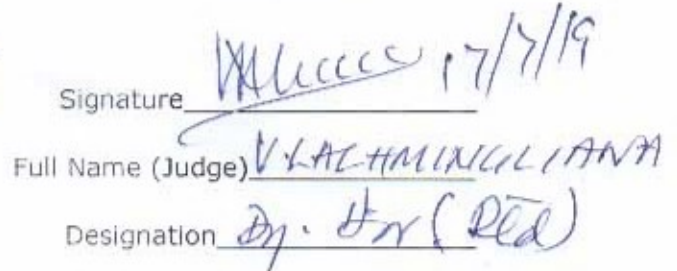 Signature 17/7/19
Full Name (Judge) V LALHMINGLIANA
Designation Dy. Dir (Rtd)